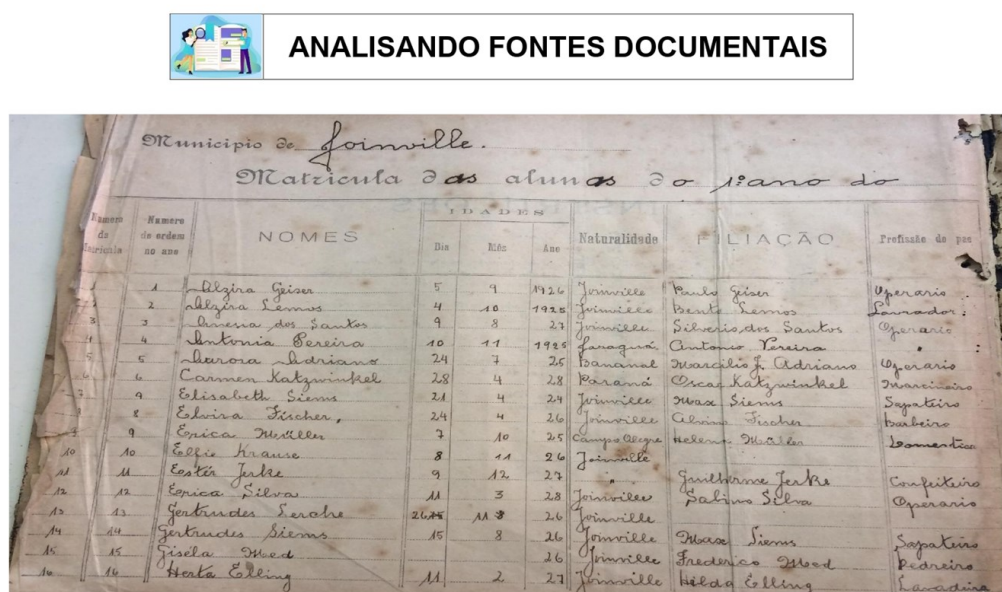 ANALISANDO FONTES DOCUMENTAIS
Municipio de Joinville.
Matricula das alunas do 1º ano do
Numero da Matricula Numero de ordem no ano NOMES IDADES Dia Mês Ano Naturalidade FILIAÇÃO Profissão do pae
1 1 Alzira Geiser 5 9 1926 Joinville Paulo Geiser Operario
2 Alzira Lemos 4 10 1925 Joinville Bento Lemos Lavrador.
3 3 dos Santos 9 8 27 Joinville Silverio dos Santos Operario
4 4 Antonia Pereira 10 11 1925 Jaraguá. Antonio Pereira
5 5 Aurora Adriano 24 7 25 Bananal Marcilio J. Adriano Operario
6 6 Carmen Katzwinkel 28 4 28 Paraná Oscar Katzwinkel Marcineiro
7 Elisabeth Siems 21 4 24 Joinville Max Siems Sapateiro
8 8 Elvira Fischer, 24 4 26 Joinville Fischer Barbeiro
9 9 Erica Müller 7 10 25 Campo Alegre Helena Müller Domestica
10 10 Ellie Krause 8 11 26 Joinville
11 11 Ester Jerke 9 12 27 " Guilherme Jerke Confeiteiro
12 12 Erica Silva 11 3 28 Joinville Sabino Silva Operario
13 13 Gertrudes Lerche 26 11 26 Joinville
14 14 Gertrudes Siems 15 8 26 Joinville Max Siems Sapateiro
15 15 Gisela Med 26 Joinville Frederico Med Pedreiro
16 16 Herta Elling 11 2 27 Joinville Hilda Elling Lavadeira